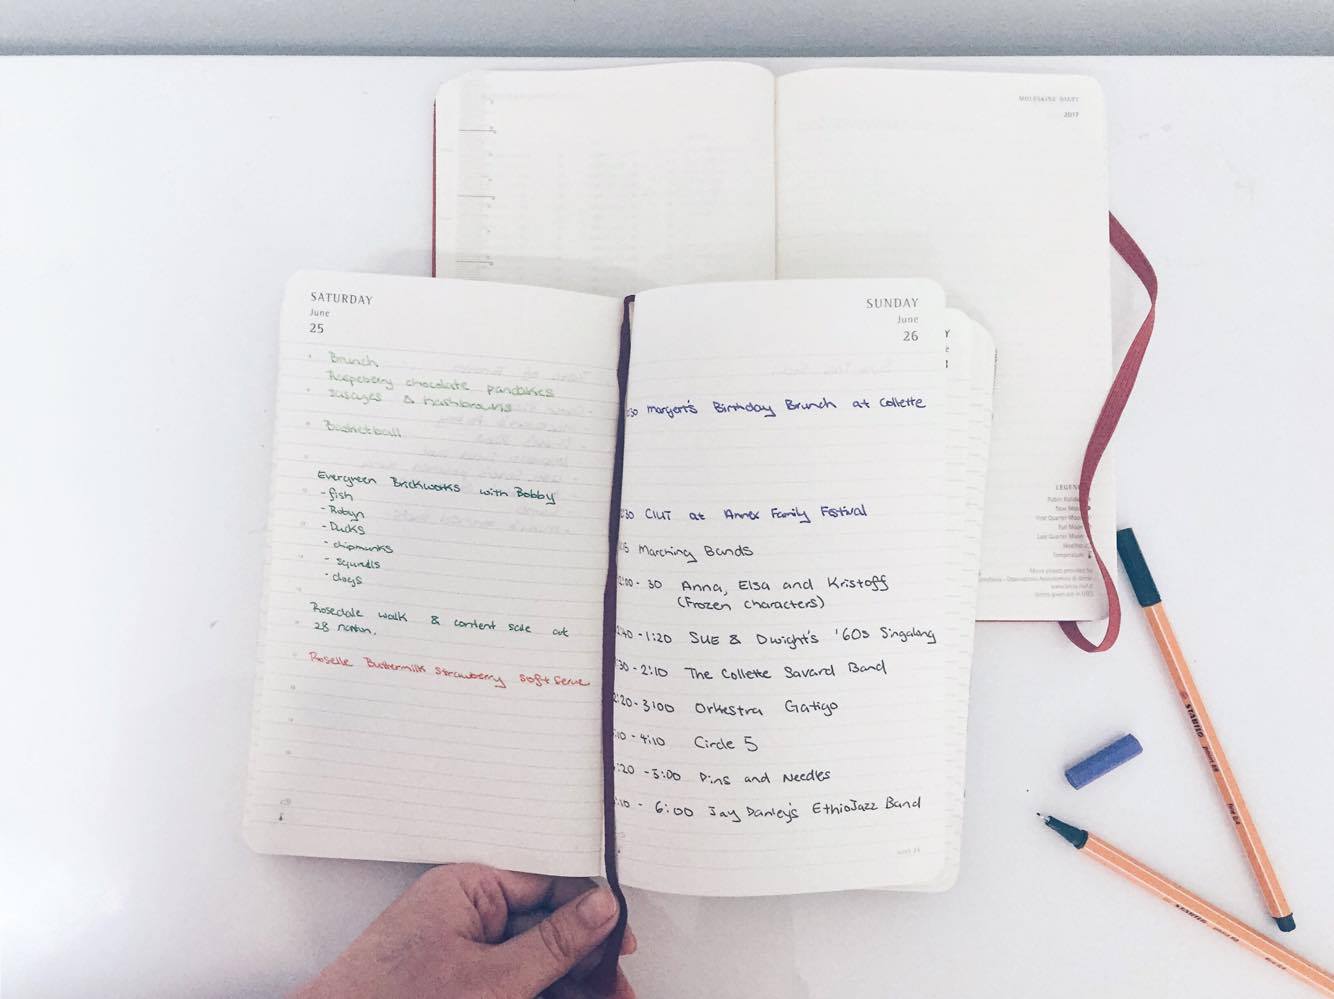 MOLESKINE DIARY
2017
SATURDAY
June
25
Brunch
Raspberry chocolate pancakes
sausages & hashbrowns
Basketball
Evergreen Brickworks with Bobby
- fish
- Robyn
- Ducks
- chipmunks
- squirells
- dogs
Rosedale walk & content sale at
28
Roselle Buttermilk Strawberry soft serve
SUNDAY
June
26
:30 Margert's Birthday Brunch at Collette
:30 CIUT at Annex Family Festival
Marching Bands
:00 - 30 Anna, Elsa and Kristoff
(Frozen characters)
:40 - 1:20 SUE & Dwight's '60s Singalong
:30 - 2:10 The Collette Savard Band
:20 - 3:00 Orkestra Gatigo
:10 - 4:10 Circle 5
:20 - 5:00 Pins and Needles
:10 - 6:00 Jay Danley's EthioJazz Band
LEGEN
New Moon
First Quarter Moon
Full Moon
Last Quarter Moon
Temperature
STABILO
STABILO